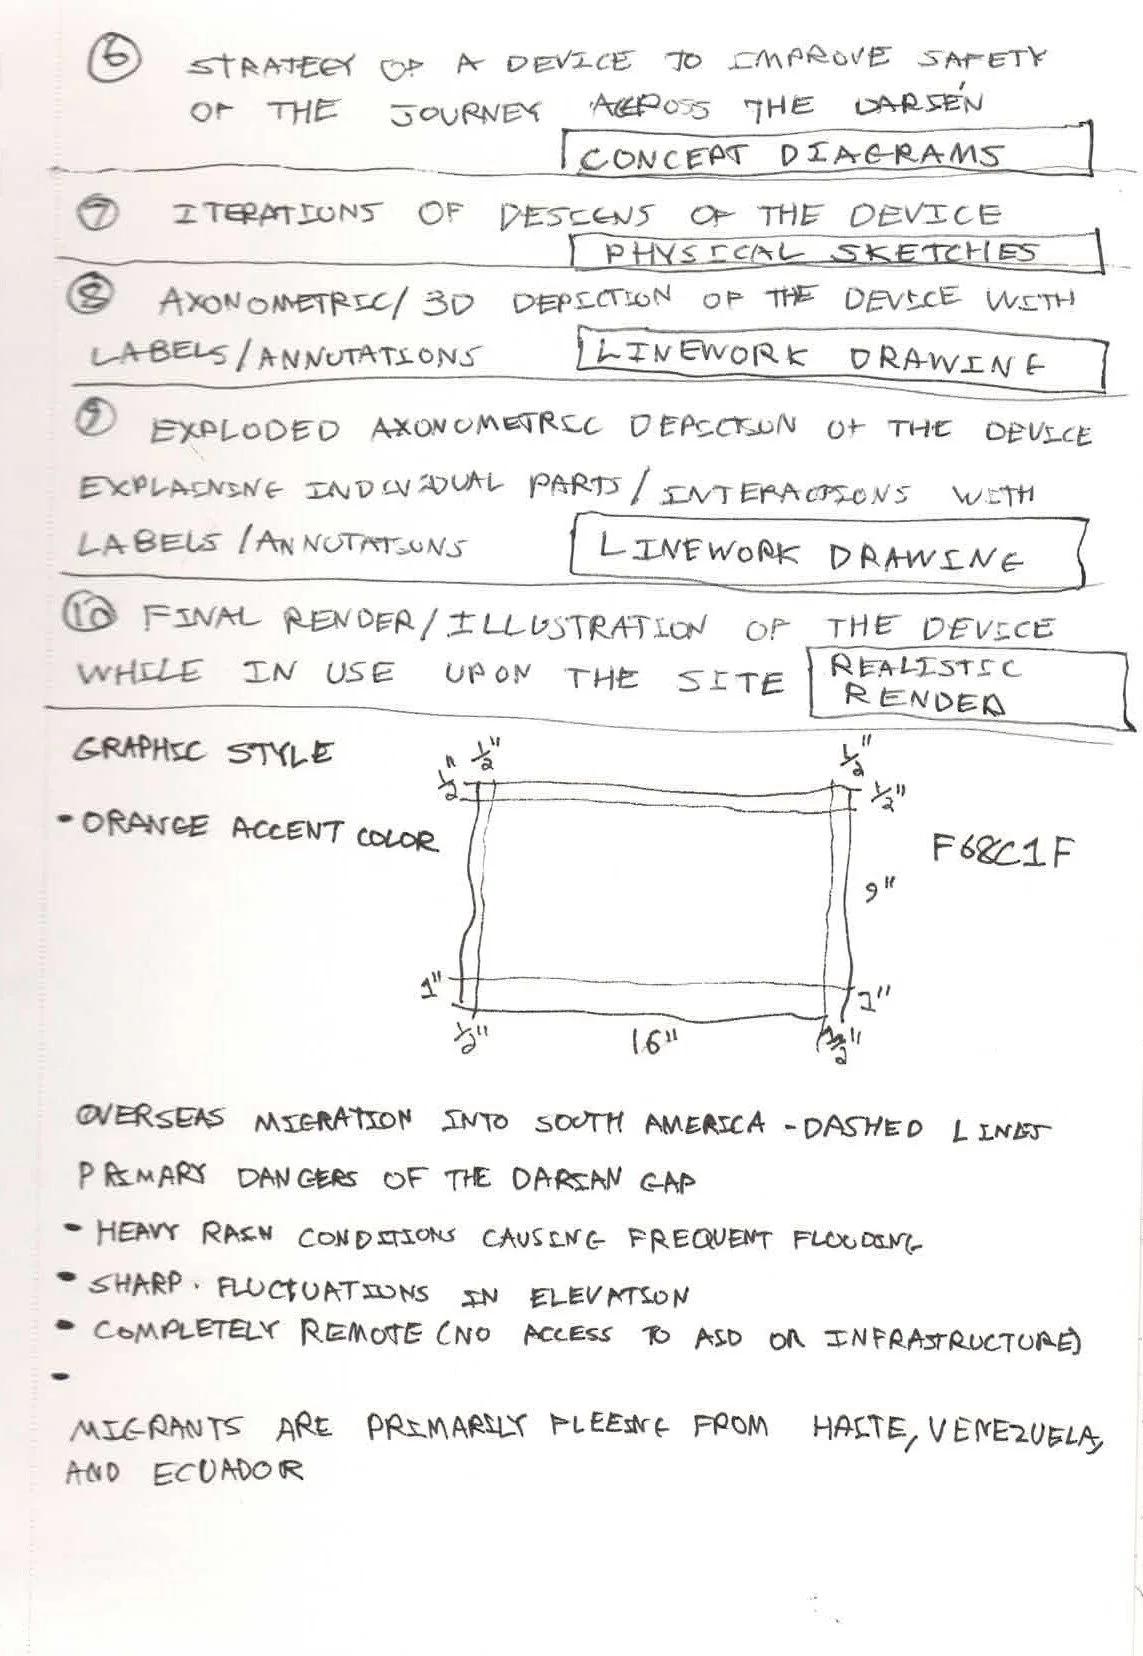 6 STRATEGY OF A DEVICE TO IMPROVE SAFETY
OF THE JOURNEY ACROSS THE DARIÉN
CONCEPT DIAGRAMS
7 ITERATIONS OF DESIGNS OF THE DEVICE
PHYSICAL SKETCHES
8 AXONOMETRIC/3D DEPICTION OF THE DEVICE WITH
LABELS/ANNOTATIONS
LINEWORK DRAWING
9 EXPLODED AXONOMETRIC DEPICTION OF THE DEVICE
EXPLAINING INDIVIDUAL PARTS/INTERACTIONS WITH
LABELS/ANNOTATIONS
LINEWORK DRAWING
10 FINAL RENDER/ILLUSTRATION OF THE DEVICE
WHILE IN USE UPON THE SITE
REALISTIC
RENDER
GRAPHIC STYLE
1/2" 1/2"
1/2"
1/2"
• ORANGE ACCENT COLOR
F68C1F
9"
1"
1"
1/2"
16"
1/2"
OVERSEAS MIGRATION INTO SOUTH AMERICA - DASHED LINES
PRIMARY DANGERS OF THE DARIAN GAP
• HEAVY RAIN CONDITIONS CAUSING FREQUENT FLOODING
• SHARP FLUCTUATIONS IN ELEVATION
• COMPLETELY REMOTE (NO ACCESS TO AID OR INFRASTRUCTURE)
•
MIGRANTS ARE PRIMARILY FLEEING FROM HAITE, VENEZUELA,
AND ECUADOR